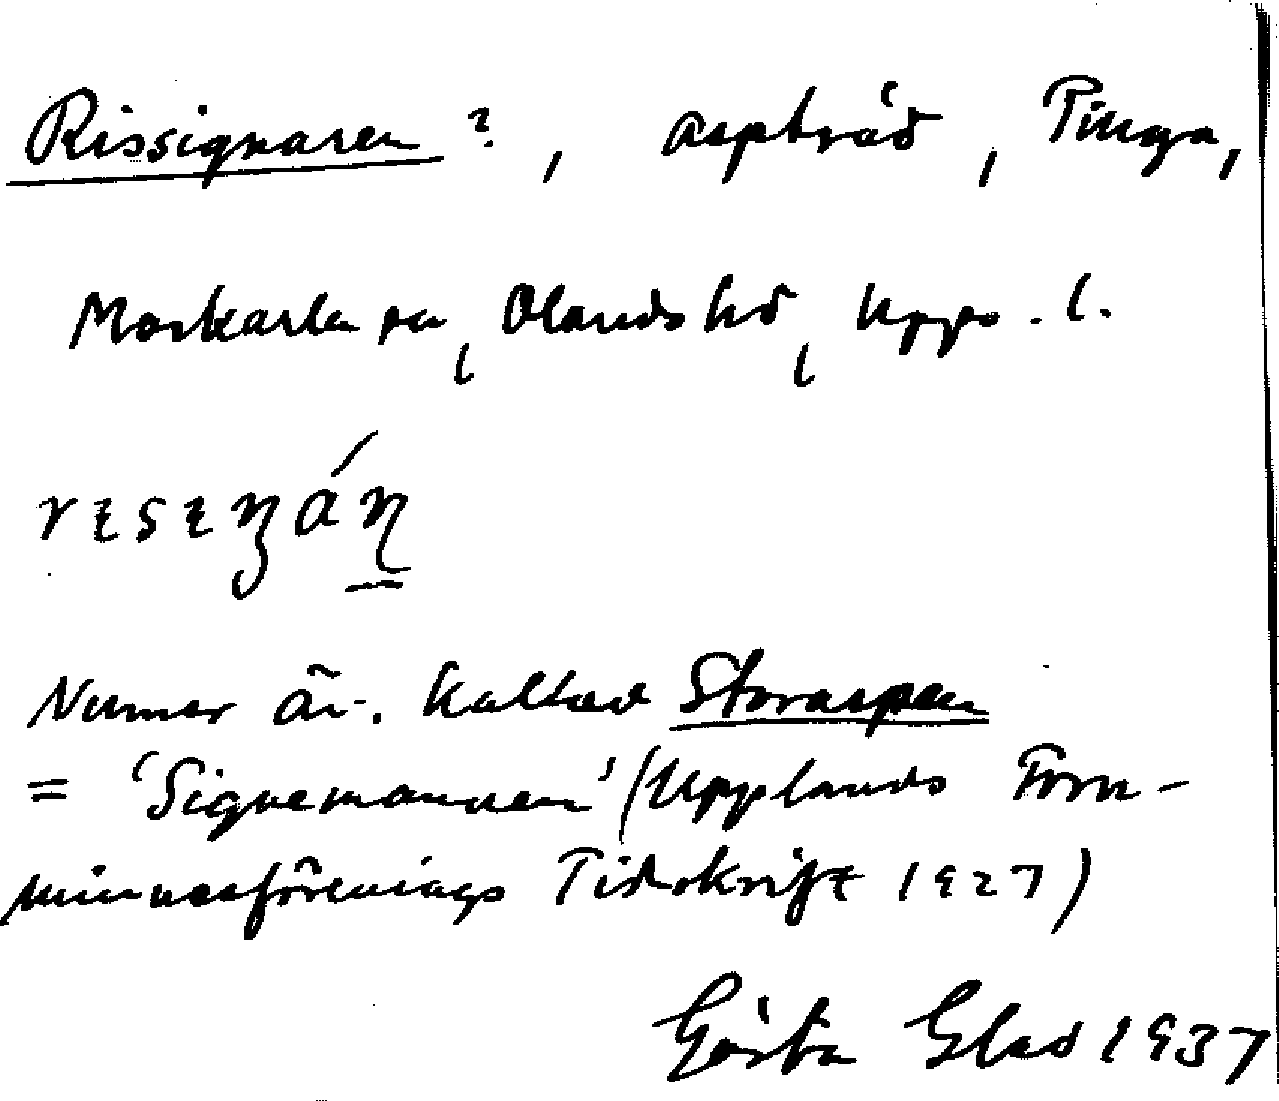 Rissignaren ?, aspträd, Pinga,
Morkarla sn, Olands hd, Upps. l.
Numer är. kallad Storaspen
= 'Signemannen' (Upplands Forn-
minnesförenings Tidskrift 1927)
Gösta Glad 1937